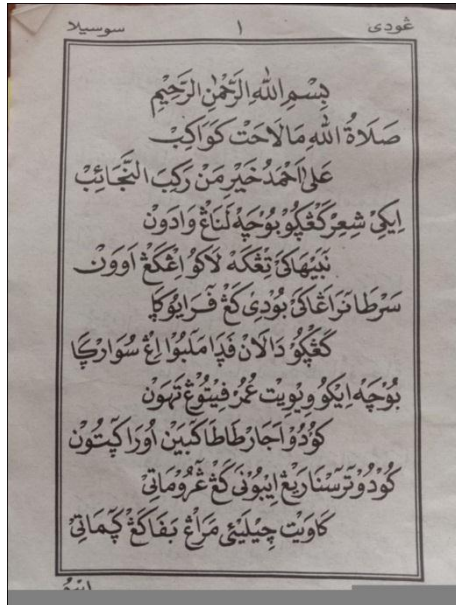 ڠودي ١ سوسيلا
بِسْمِ اللهِ الرَّحْمٰنِ الرَّحِيْمِ
صَلَاةُ اللهِ مَالَاحَتْ كَوَاكِبْ
عَلَى اَحْمَدُ خَيْرِ مَنْ رَكِبَ النَّجَائِبْ
اِيكِيْ شِعِرْ كَڠْڮَوْ بَوْچَهْ لَنَاڠْ وَادَوْنْ
نَبَيْهَاكَيْ تِڠْكَهْ لَاكُوْ اِڠْكَڠْ اَوَونْ
سَرْطَا نَرَاڠَاكَيْ بُوْدِيْ كَڠْ فْرَايَوْڮَا
كَڠْڮَوْ دَالَانْ فَڎَا مْلَبُوْا اِڠْ سُوَارْڮَا
بَوْچَهْ اِيكُوْ وِيْوِيْت عُمُرْ فِيْتُوْڠْ تَهَوْنْ
كُوْدُوْ اَجَارْ طَاطَا كَبَيْنْ اَوْرَا ڮَتَوْنْ
كُوْدُوْ تْرَيْسْنَا رِيْڠْ اِيْبُوْنَيْ كَڠْ ڠْرُوْمَاتِيْ
كَاوِيْت چِيْلِيْئَيْ مَرَاڠْ بَفَا كَڠْ ڮَمَاتِيْ